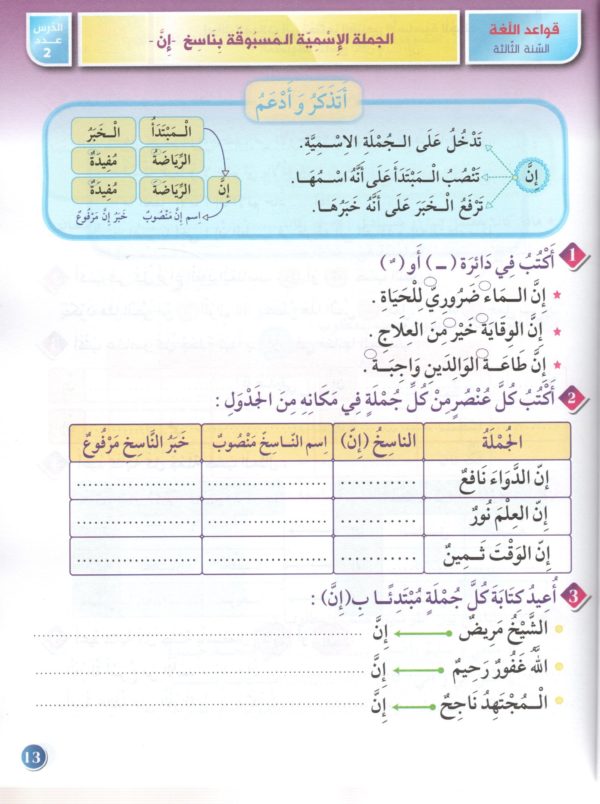 قواعد اللّغة
السّنة الثّالثة
الجملة الإسْميّة المَسبُوقَة بِنَاسِخ -إِنَّ-
الدّرس
عدد
2
أَتَذَكَّرُ وَ أَدْعَمُ
إِنَّ
تَدْخُلُ عَلَى الـجُمْلَةِ الاِسْمِيَّةِ.
تَنْصُبُ الْـمُبْتَدَأَ عَلَى أَنَّهُ اسْمُهَا.
تَرْفَعُ الْـخَبَرَ عَلَى أَنَّهُ خَبَرُهَا.
الْـمُبْتَدَأُ الْـخَبَرُ
الرِّيَاضَةُ مُفِيدَةٌ
إِنَّ الرِّيَاضَةَ مُفِيدَةٌ
اِسم إِنّ مَنْصُوبٌ خَبَرُ إِنّ مَرْفُوعٌ
1 أَكْتُبُ فِي دَائِرَة (ــَ) أَو (ــٌ)
إِنَّ الـمَاء ضَرُورِيّ لِلْحَيَاةِ .
إِنَّ الوِقَايَة خَيْر مِنَ العِلَاجِ .
إِنَّ طَاعَـة الوَالِدَينِ وَاجِبَـة .
2 أَكْتُبُ كُلَّ عُنْصُرٍ مِنْ كُلِّ جُمْلَةٍ فِي مَكَانِهِ مِنَ الجَدْوَلِ :
الجُمْلَةُ الناسِخُ (إِنَّ) اِسم النَّـاسِخ مَنْصُوبٌ خَبَرُ النَّاسِخ مَرْفُوعٌ
إِنّ الدَّوَاءَ نَافِعٌ ........... .................. ..................
إِنّ العِلْمَ نُورٌ ........... .................. ..................
إِنّ الوَقْتَ ثَـمِينٌ ........... .................. ..................
3 أُعِيدُ كِتَابَةَ كُلَّ جُمْلَةٍ مُبْتَدِئًـا بِـ(إِنَّ) :
الشَّيْخُ مَرِيضٌ إِنَّ ............................................................
اللَّهُ غَفُورٌ رَحِيمٌ إِنَّ ............................................................
الْـمُجْتَهِدُ نَاجِحٌ إِنَّ ............................................................
13